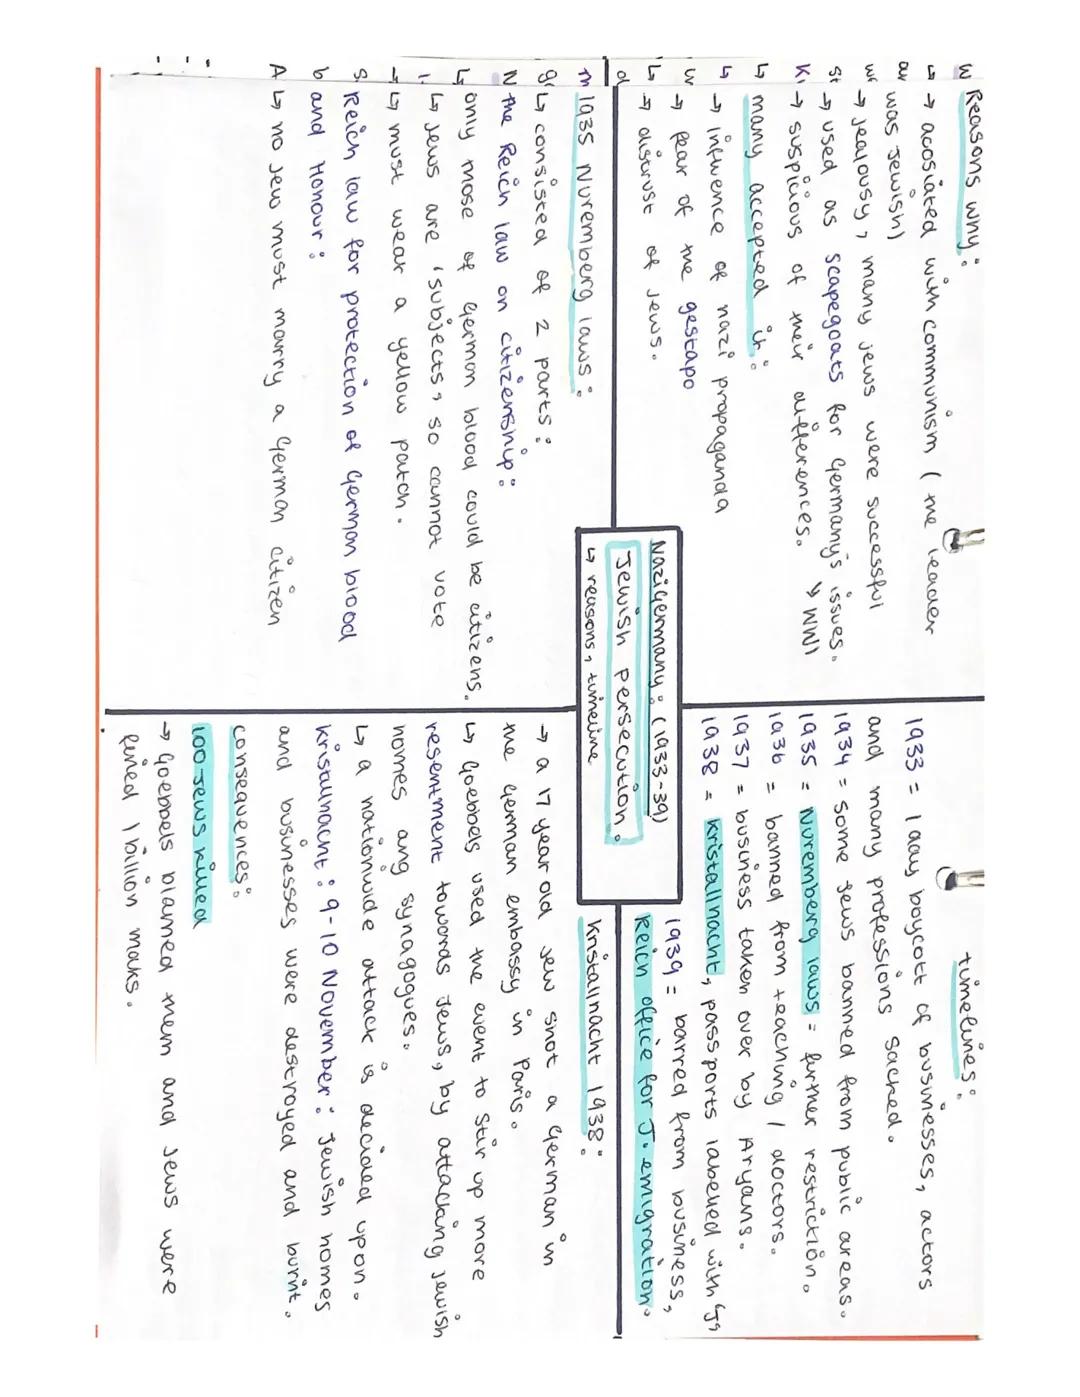 Reasons why:
→ acosiated with communism (the leader
was Jewish)
→ jealousy, many jews were successful
→ used as scapegoats for Germany's issues.
↳ WW1
→ suspicious of their differences.
many accepted it:
→ influence of nazi propaganda
→ fear of the gestapo
→ distrust of Jews.
timelines:
1933 = 1 day boycott of businesses, actors
and many professions sacked.
1934 = some Jews banned from public areas.
1935 = Nuremberg laws = further restriction.
1936 = banned from teaching / doctors.
1937 = business taken over by Aryans.
1938 = Kristallnacht, passports labelled with 'J's
1939 = barred from business,
Reich office for J. emigration.
Nazi Germany: (1933-39)
Jewish persecution.
↳ reasons, timeline
1935 Nuremberg laws:
↳ consisted of 2 parts:
the Reich law on citizenship:
↳ only those of German blood could be citizens.
↳ Jews are 'subjects, so cannot vote
↳ must wear a yellow patch.
Reich law for protection of German blood
and Honour:
↳ no Jew must marry a German citizen
Kristallnacht 1938:
→ a 17 year old Jew shot a German in
the German embassy in Paris.
↳ Goebbels used the event to stir up more
resentment towards Jews, by attacking Jewish
homes and synagogues.
↳ a nationwide attack is decided upon.
Kristallnacht: 9-10 November: Jewish homes
and businesses were destroyed and burnt.
consequences:
100 Jews killed
→ Goebbels blamed them and Jews were
fined 1 billion maks.